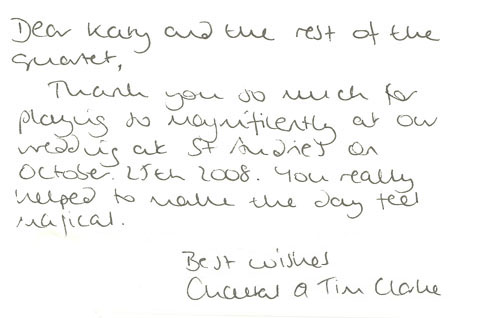 Dear Kary and the rest of the
quartet,
Thank you so much for
playing so magnificently at our
wedding at St Andrie's on
October 25th 2008. You really
helped to make the day feel
magical.
Best wishes
Chantal & Tim Clarke